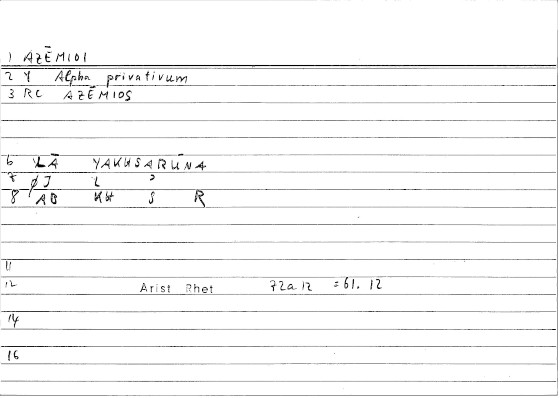 1 AZĒMIOI
2 Y Alpha privativum
3 RC AZĒMIOS
6 LĀ YAKUSARŪNA
7 ØJ L ɔ
8 AB KH S R
11
12 Arist Rhet 72a12 =61.12
14
16